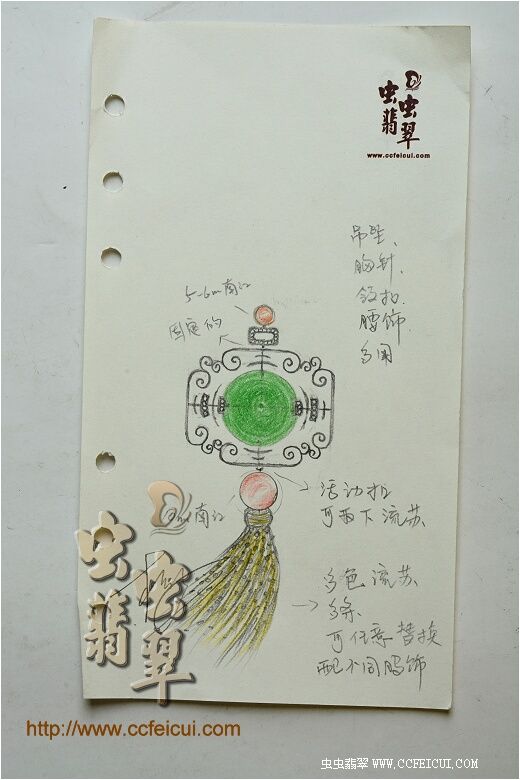 虫虫
翡翠
www.ccfeicui.com
吊坠、
胸针、
领扣、
腰饰、
多用
5-6m南红
固定的
活动扣
可西下流苏
南红
多色流苏、
多条、
可任意替换
配不同服饰
虫虫
翡翠
http://www.ccfeicui.com
虫虫翡翠 WWW.CCFEICUI.COM